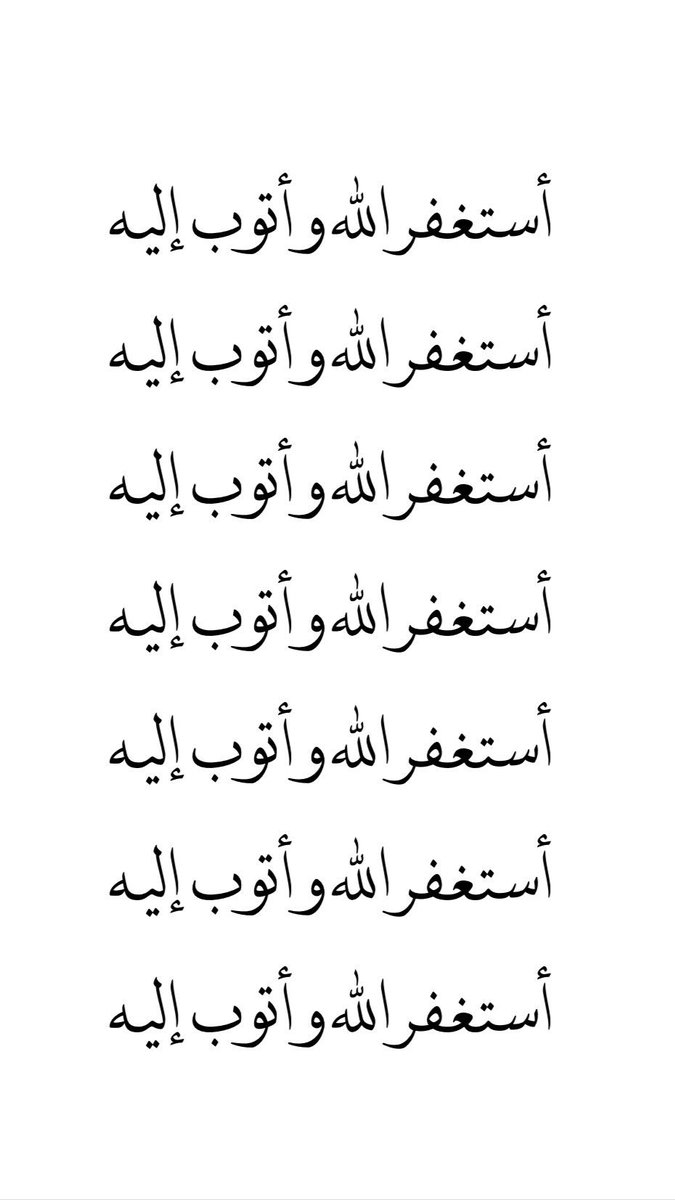 أستغفر الله و أتوب إليه
أستغفر الله و أتوب إليه
أستغفر الله و أتوب إليه
أستغفر الله و أتوب إليه
أستغفر الله و أتوب إليه
أستغفر الله و أتوب إليه
أستغفر الله و أتوب إليه